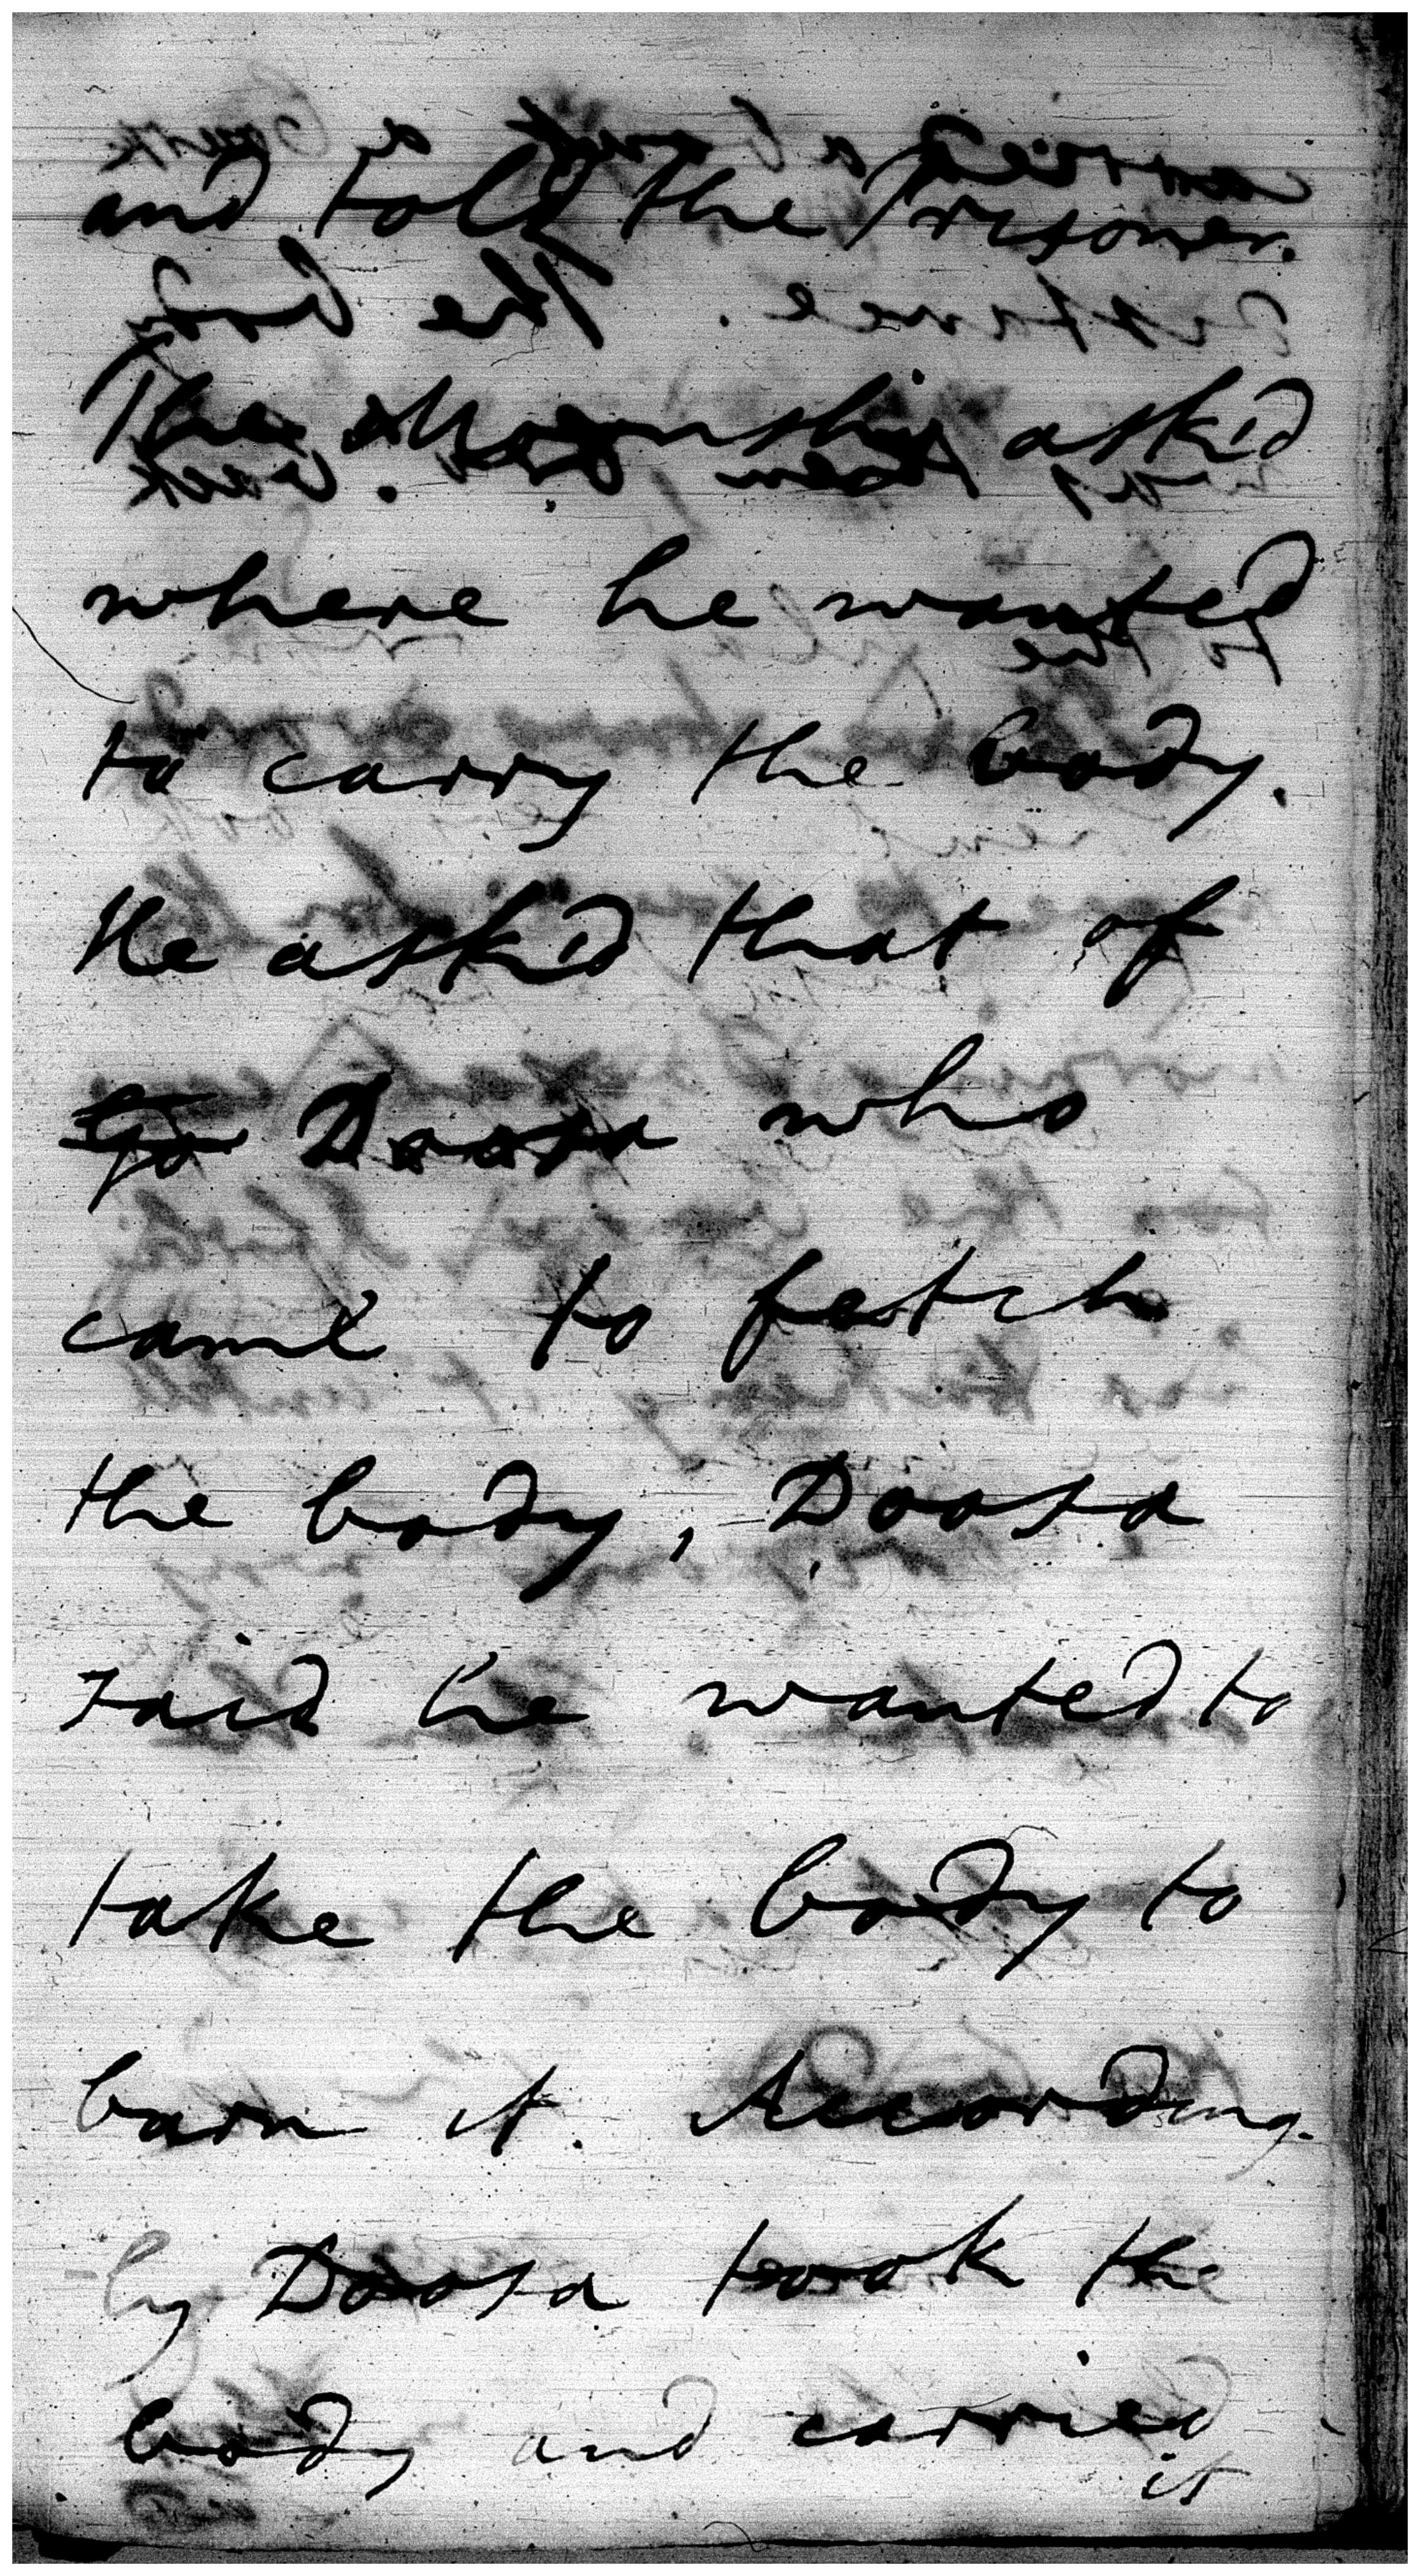 and told the Prisoner.
The Moonshi ask'd
where he wanted
to carry the body.
He ask'd that of
Go Doosa who
came to fetch
the body, Doosa
said he wanted to
take the body to
burn it. According-
ly Doosa took the
body and carried
it